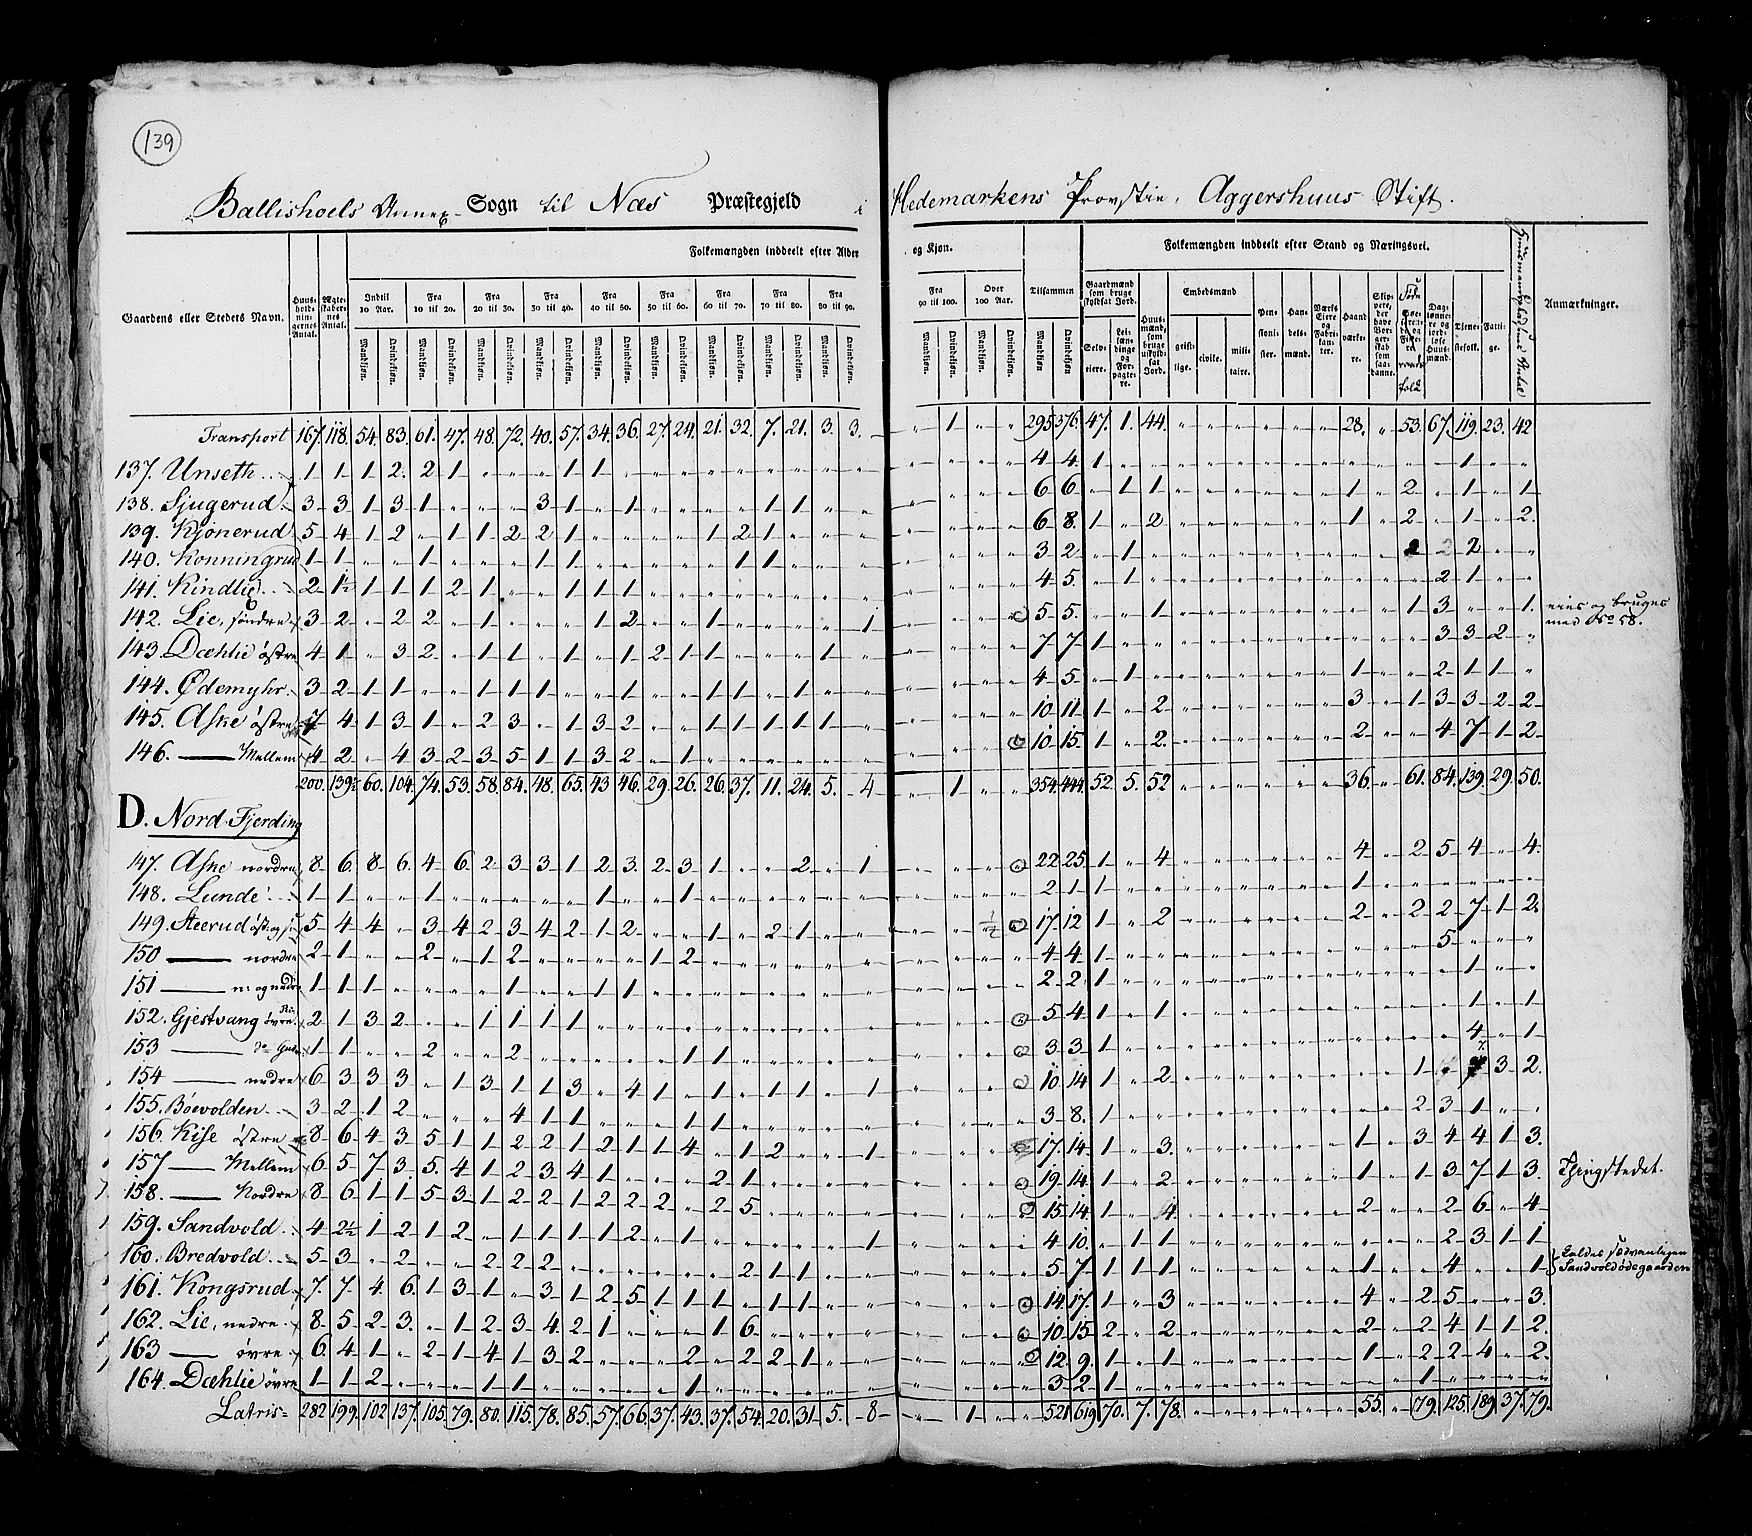 139
Ballishoels Annex Sogn til Næs Præstegjeld i Hedemarkens Provstie, Aggershuus Stift.
Folkemængden inddeelt efter Alder og Kjøn.
Folkemængden inddeelt efter Stand og Næringsvei.
Gaardens eller Stedets Navn.
Huusholdningernes Antal.
Ægteskabernes Antal.
Indtil 10 Aar.
Fra 10 til 20.
Fra 20 til 30.
Fra 30 til 40.
Fra 40 til 50.
Fra 50 til 60.
Fra 60 til 70.
Fra 70 til 80.
Fra 80 til 90.
Fra 90 til 100.
Over 100 Aar.
Tilsammen
Mandkjøn. Qvindekjøn.
Gaardmænd som bruge skyldsat Jord.
Selveiere.
Leilændinge og Forpagtere.
Huusmænd, som bruge uskyldsat Jord.
Embedsmænd
geistlige. civile. militaire.
Pensionister.
Handelsmænd.
Værks Eiere og Fabrikanter.
Haandværkere.
Skippere, der have Borgerskab som saadanne.
Daglønnere og jordløse Huusmænd.
Tjenestefolk.
Fattige.
Anmærkninger.
Transport 167. 118. 54. 83. 61. 47. 48. 72. 40. 57. 34. 36. 27. 24. 21. 32. 7. 21. 3. 3. 1 295 376. 47. 1. 44. 28. 53. 67. 119. 23. 42
137. Unseth 1 1 1 2 2 1 1 1 4 4 1 1
138. Sjugerud 3 3 1 3 1 3 1 1 1 1 6 6 1 1 1 2 1 1
139. Kjønerud 5 4 1 2 1 1 2 2 1 1 2 1 6 8 1 2 1 2 1 2
140. Konningrud 1 1 1 1 1 1 1 3 2 1 2
141. Kindlie 2 1½ 1 1 1 2 1 1 1 1 4 5 1 2 1
142. Lie, søndre 3 2 2 2 1 1 2 1 1 5 5 1 1 3 1 eies og bruges
med No 58.
143. Dæhlie østre 4 1 3 2 1 1 1 1 2 1 1 1 7 7 1 3 3 2
144. Ødemyhr 3 2 1 1 1 1 1 1 1 1 1 4 5 1 1 2 1 1
145. Aske østre 7 4 1 3 1 2 3 1 3 2 1 1 1 1 1 10 11 1 2 3 1 3 3 2 2
146. Mellem 4 2 4 3 2 3 5 1 1 3 2 1 10 15 1 2 2 4 7 1 2
200. 139½ 60. 104. 74. 53. 58. 84. 48. 65. 43 46. 29. 26. 26. 37. 11. 24. 5. 4 1 354. 444. 52. 5. 52 36. 61. 84. 139. 29. 50.
D. Nord Fjerding
147. Aske nordre 8 6 8 6 4 6 2 3 3 1 2 3 2 3 1 2 1 22 25 1 4 4 2 5 4 4
148. Lunde 1 1 1 1 1 2 1 1 1
149. Steerud 5 4 4 3 4 2 3 4 2 1 2 1 2 1 17 12 1 2 2 2 2 7 1 2
150 nordre 2 1 2 1 2 1 2 4 4 1 5
151 1 1 1 1 1 1 2 2 1 1
152. Gjestvang øvre 2 1 3 2 1 1 1 1 5 4 1 1 1 1
153 1 1 2 2 1 1 3 3 1 4 1
154 nedre 6 3 3 3 1 3 1 1 3 4 1 1 1 1 10 14 1 2 1 3 2
155. Bøevolden 3 2 1 2 4 1 1 1 1 3 8 1 2 3 1
156. Kise østre 8 6 4 3 5 1 1 2 2 1 2 1 1 4 1 2 1 17 14 1 3 1 3 4 4 1 3
157 Mellem 6 5 7 3 5 4 1 2 3 4 1 2 1 19 14 1 2 1 1 3 7 1 3 Thingstedet.
158. Nordre 8 6 1 1 5 3 1 2 2 1 2 2 2 2 5 15 14 1 4 2 2 6 4
159. Sandvold 4 2½ 1 2 1 2 1 1 1 1 2 1 1 4 10 1 1 2 3 1 1
160. Bredvold 5 3 2 2 2 2 2 1 1 5 7 1 1 1 1 4 1 Kaldes sædvanligen
Sandvoldødegaarden
161. Kongsrud 7 7 4 6 1 3 1 3 1 2 5 1 1 1 1 1 14 17 1 3 4 2 5 3
162. Lie, nedre 8 5 2 3 1 2 3 4 2 1 1 6 10 15 2 2 2 2 4 1 1 2
163 øvre 6 4 1 2 1 4 1 3 2 2 2 2 1 12 9 1 1 1 2 2 4 2
164. Dæhlie øvre 1 1 2 1 1 1 3 2 1 1
Latris 282 199. 102 137. 105. 79. 80. 115. 78. 85. 57. 66. 37. 43. 37. 54. 20. 31. 5. 8 1 521 619 70. 7. 78. 55. 79. 125. 189. 37. 79.